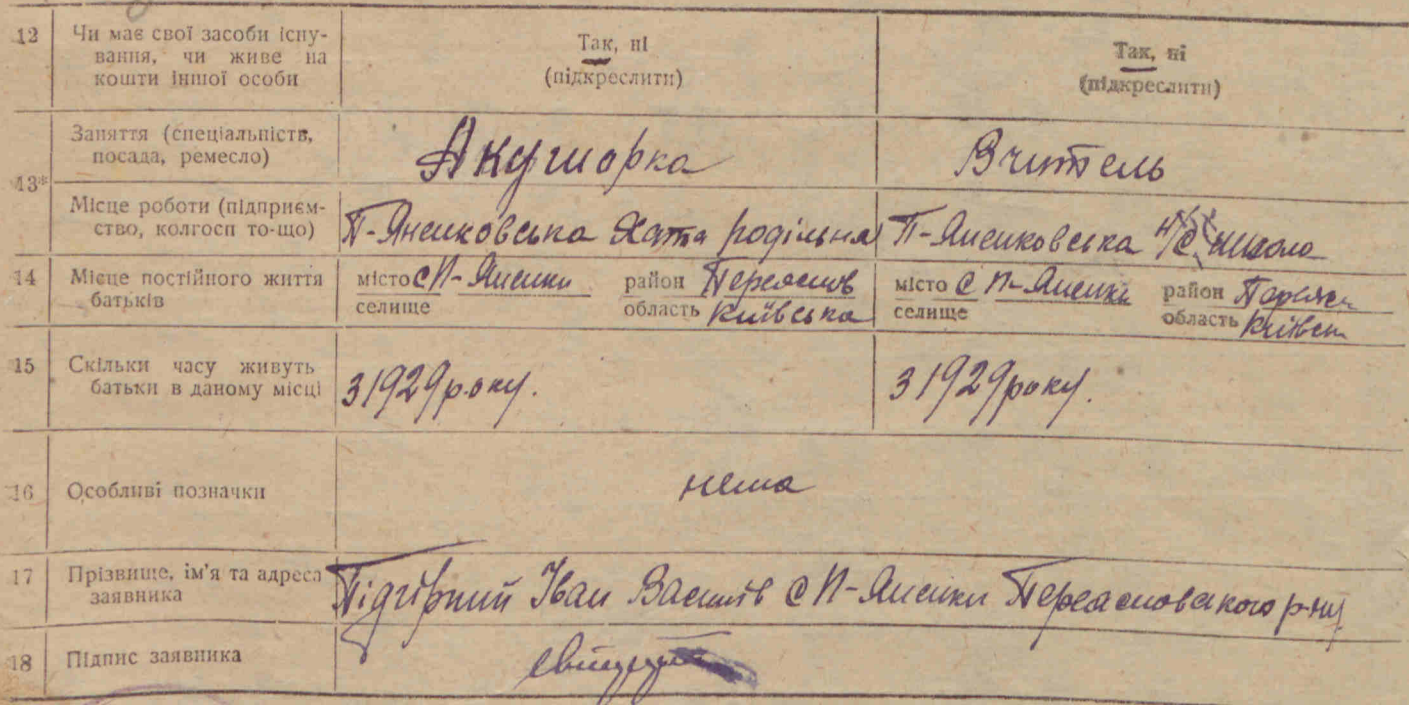 12 Чи має свої засоби існу-
вання, чи живе на
кошти іншої особи
Так, ні
(підкреслити)
Так, ні
(підкреслити)
13*
Заняття (спеціальність,
посада, ремесло)
Акушорка
Вчитель
Місце роботи (підприєм-
ство, колгосп то-що)
Хата родільня
школа
14 Місце постійного життя
батьків
місто с П-
селище
район Переяслів
область Київська
місто с П-
селище
район Переясл
область Київськ
15 Скільки часу живуть
батьки в даному місці
З 1929 року.
З 1929 року.
16 Особливі позначки
нема
17 Прізвище, ім'я та адреса
заявника
Підгірний Іван Васильв с П- Переасловского р-ну
18 Підпис заявника